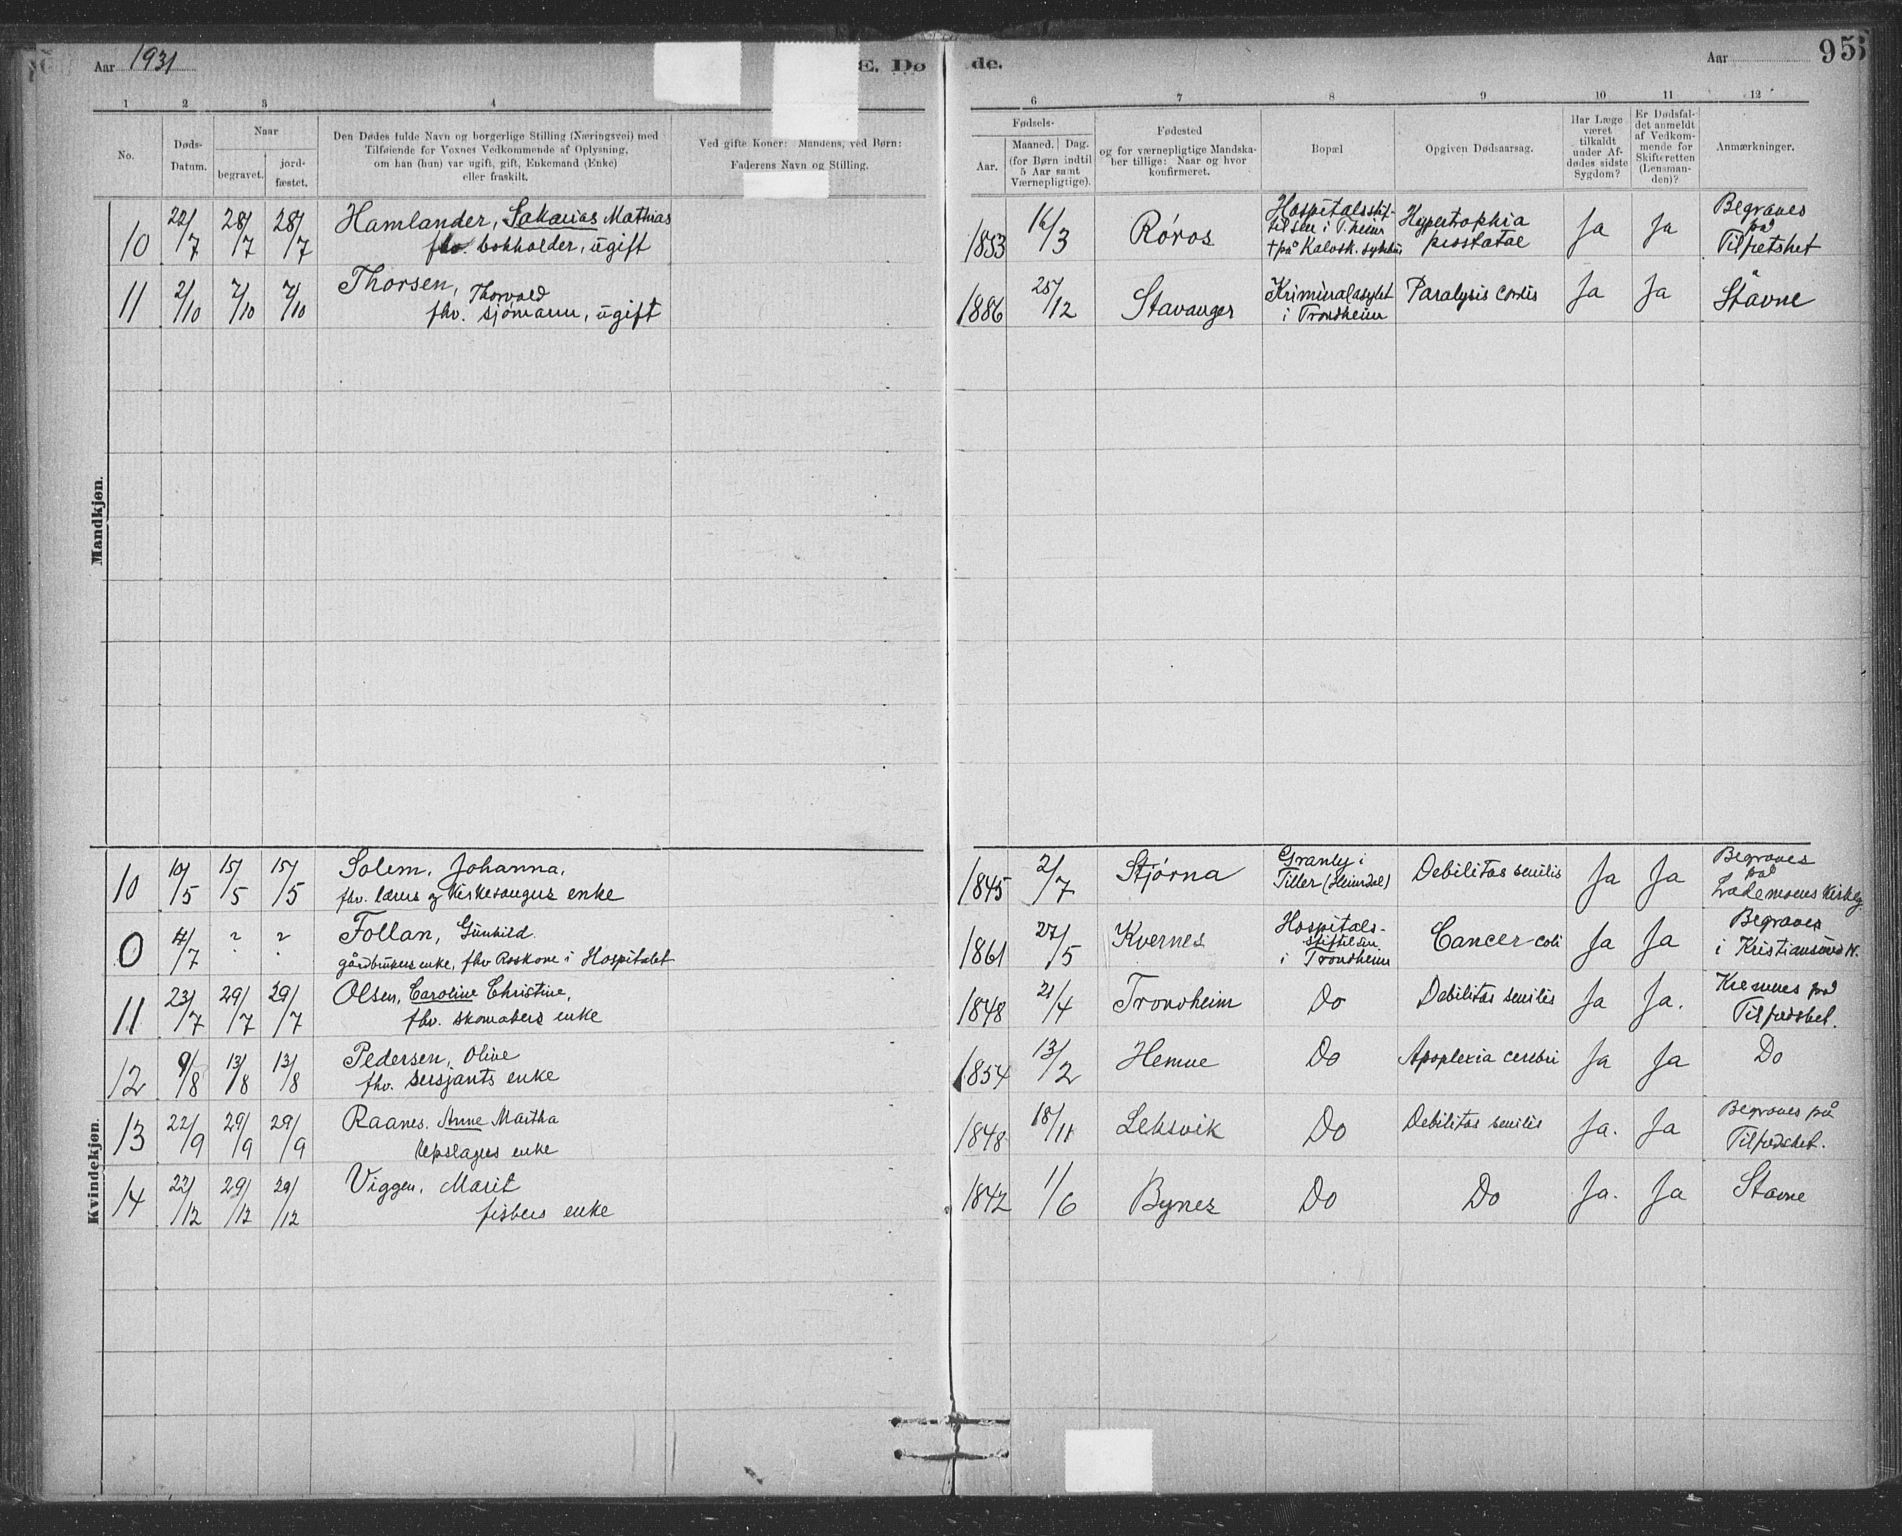 Aar 1931
E. Dø
de.
Aar
95
1 2 3 4
6 7 8 9 10 11 12
No.
Døds-
Datum.
Naar
begravet.
jord-
fæstet.
Den Dødes fulde Navn og borgerlige Stilling (Næringsvei) med
Tilføiende for Voxnes Vedkommende af Oplysning,
om han (hun) var ugift, gift, Enkemand (Enke)
eller fraskilt.
Ved gifte Koner: Mandens, ved Børn:
Faderens Navn og Stilling.
Fødsels-
Aar.
Maaned. Dag.
(for Børn indtil
5 Aar samt
Værnepligtige).
Fødested
og for værnepligtige Mandska-
ber tillige: Naar og hvor
konfirmeret.
Bopæl
Opgiven Dødsaarsag.
Har Læge
været
tilkaldt
under Af-
dødes sidste
Sygdom?
Er Dødsfal-
det anmeldt
af Vedkom-
mende for
Skifteretten
(Lensman-
den)?
Anmærkninger.
Mandkjøn.
10 22/7 28/7 28/7 Hamlander, Sakarias Mathias
fhv. bokholder, ugift
1853 16/3 Røros
Hospitalsstif-
telsen i T.heim
† på Kalvsk. sykehus
Hypertrophia
prostatae
Ja Ja
Begraves
på
Tilfretshet
11 2/10 7/10 7/10 Thorsen, Thorvald
fhv. sjømann, ugift
1886 25/12 Stavanger
Kriminalasylet
i Trondheim
Paralysis cordis Ja Ja Stavne
Kvindekjøn.
10 10/5 15/5 15/5 Solem, Johanna,
fhv. lærer og kirkesangers enke
1845 2/7 Stjørna
Granly i
Tiller (Heimdal)
Debilitas senilis Ja Ja
Begraves
på
Lademoens Kirkeg.
0 4/7 ? ? Follan, Gunhild
gårdbrukers enke, fhv Roskone i Hospitalet
1861 27/5 Kvernes
Hospitals-
stiftelsen
i Trondheim
Cancer coli Ja Ja
Begraves
i Kristiansund N.
11 23/7 29/7 29/7 Olsen, Caroline Christine,
fhv. skomakers enke
1848 21/4 Trondheim Do Debilitas senilis Ja Ja.
Kremeres på
Tilfredshet.
12 9/8 13/8 13/8 Pedersen, Olive
fhv. sersjants enke
1854 13/2 Hemne Do Apoplexia cerebri Ja Ja Do
13 22/9 29/9 29/9 Raanes, Anne Martha
repslagers enke
1848 18/11 Leksvik Do Debilitas senilis Ja. Ja
Begraves på
Tilfredshet.
14 22/12 29/12 29/12 Viggen, Marit
fiskers enke
1842 1/6 Bynes Do Do Ja. Ja Stavne